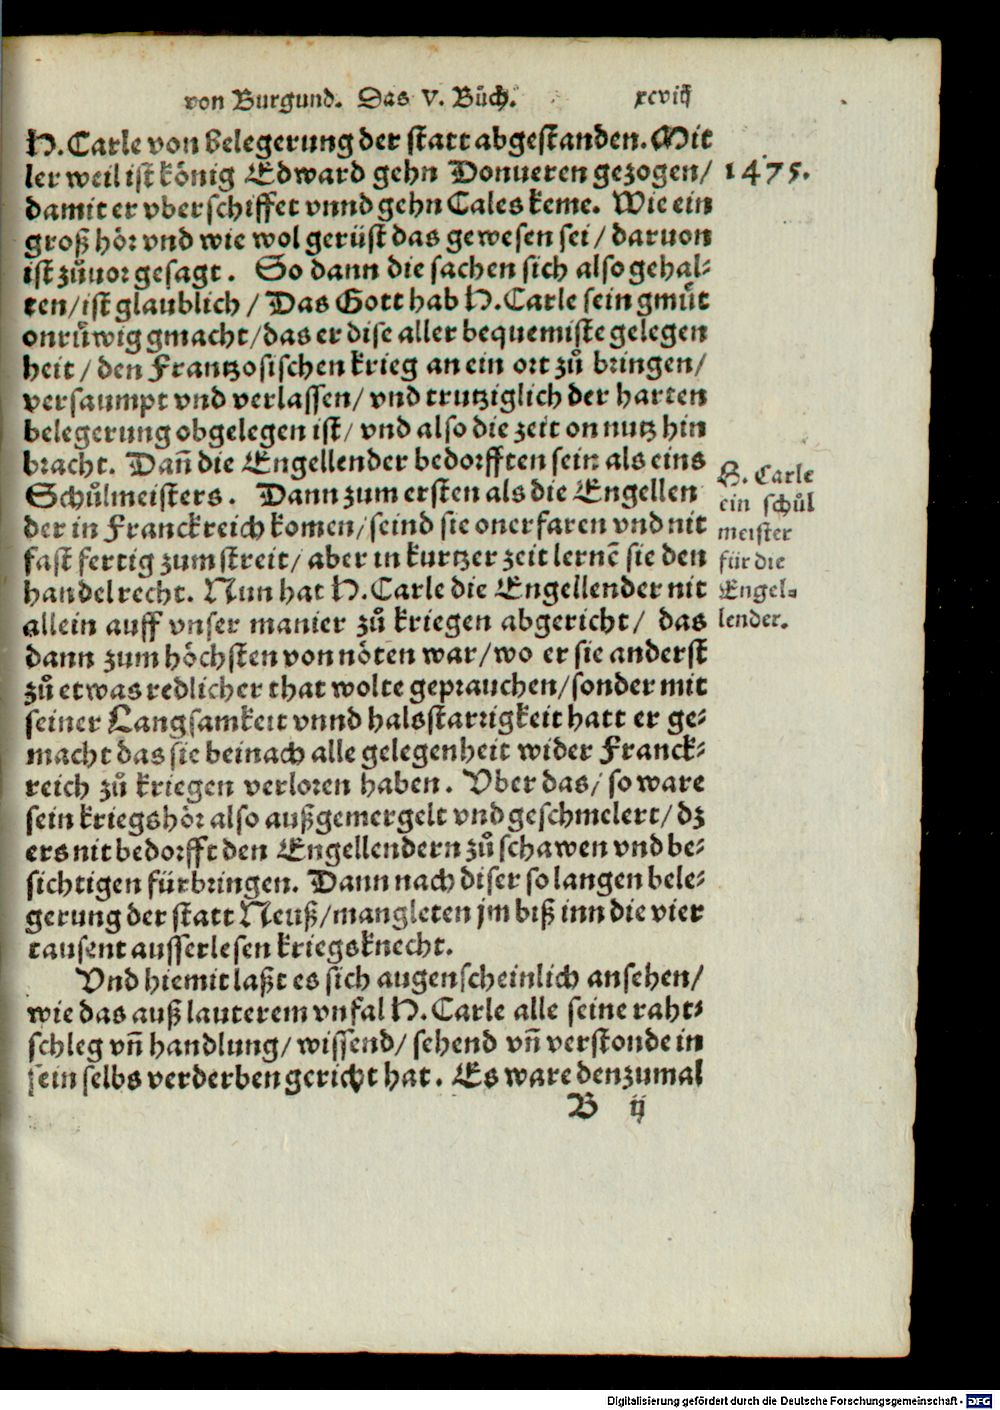 von Burgund. Das V. Bůch. xcviij
H. Carle von belegerung der statt abgestanden. Mit
ler weil ist könig Edward gehn Donueren gezogen/ 1475.
damit er vberschiffet vnnd gehn Cales keme. Wie ein
groß hör vnd wie wol gerüst das gewesen sei/ daruon
ist zůuor gesagt. So dann die sachen sich also gehal⸗
ten/ ist glaublich/ Das Gott hab H. Carle sein gmůt
onrůwig gmacht/ das er dise aller bequemiste gelegen
heit/ den Frantzosischen krieg an ein ort zů bringen/
versaumpt vnd verlassen/ vnd trutziglich der harten
belegerung obgelegen ist/ vnd also die zeit on nutz hin
bracht. Dañ die Engellender bedorfften sein als eins
Schůlmeisters. Dann zum ersten als die Engellen
der in Franckreich komen/ seind sie onerfaren vnd nit
fast fertig zum streit/ aber in kurtzer zeit lernẽ sie den
handel recht. Nun hat H. Carle die Engellender nit
allein auff vnser manier zů kriegen abgericht/ das
dann zum höchsten von nöten war/ wo er sie anderst
zů etwas redlicher that wolte geprauchen/ sonder mit
seiner Langsamkeit vnnd halsstarrigkeit hatt er ge⸗
macht das sie beinach alle gelegenheit wider Franck⸗
reich zů kriegen verloren haben. Vber das/ so ware
sein kriegshör also außgemergelt vnd geschmelert/ dz
ers nit bedorfft den Engellendern zů schawen vnd be⸗
sichtigen fürbringen. Dann nach diser so langen bele⸗
gerung der statt Neuß/ mangleten jm biß inn die vier
tausent ausserlesen kriegsknecht.
Vnd hiemit laßt es sich augenscheinlich ansehen/
wie das auß lauterem vnfal H. Carle alle seine raht⸗
schleg vñ handlung/ wissend/ sehend vñ verstonde in
sein selbs verderben gericht hat. Es ware denzumal
B ij
H. Carle
ein schůl
meister
für die
Engel⸗
lender.
Digitalisierung gefördert durch die Deutsche Forschungsgemeinschaft - DFG